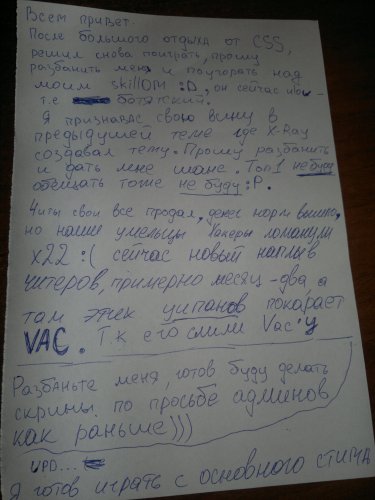 Всем привет.
После большого отдыха от CSS,
решил снова поиграть, прошу
разбанить меня и поугарать над
моим skillом :D, он сейчас
т.е ботятский.
Я признавас свою вину в
предыдущей теме где X-Ray
создавал тему. Прошу разбанить
и дать мне шанс. Топ 1 не буду
обещать тоже не буду :P.
Читы свои все продал, денег норм вышло,
но наши умельцы хакеры ломанули
x22 :( сейчас новый наплыв
читеров, примерно месяц-два, а
там этих уипанов покарает
VAC. Т к его слили Vac'у
Разбаньте меня, готов буду делать
скрины по просьбе админов
как раньше)))
UPD...
Я готов играть с основного стима